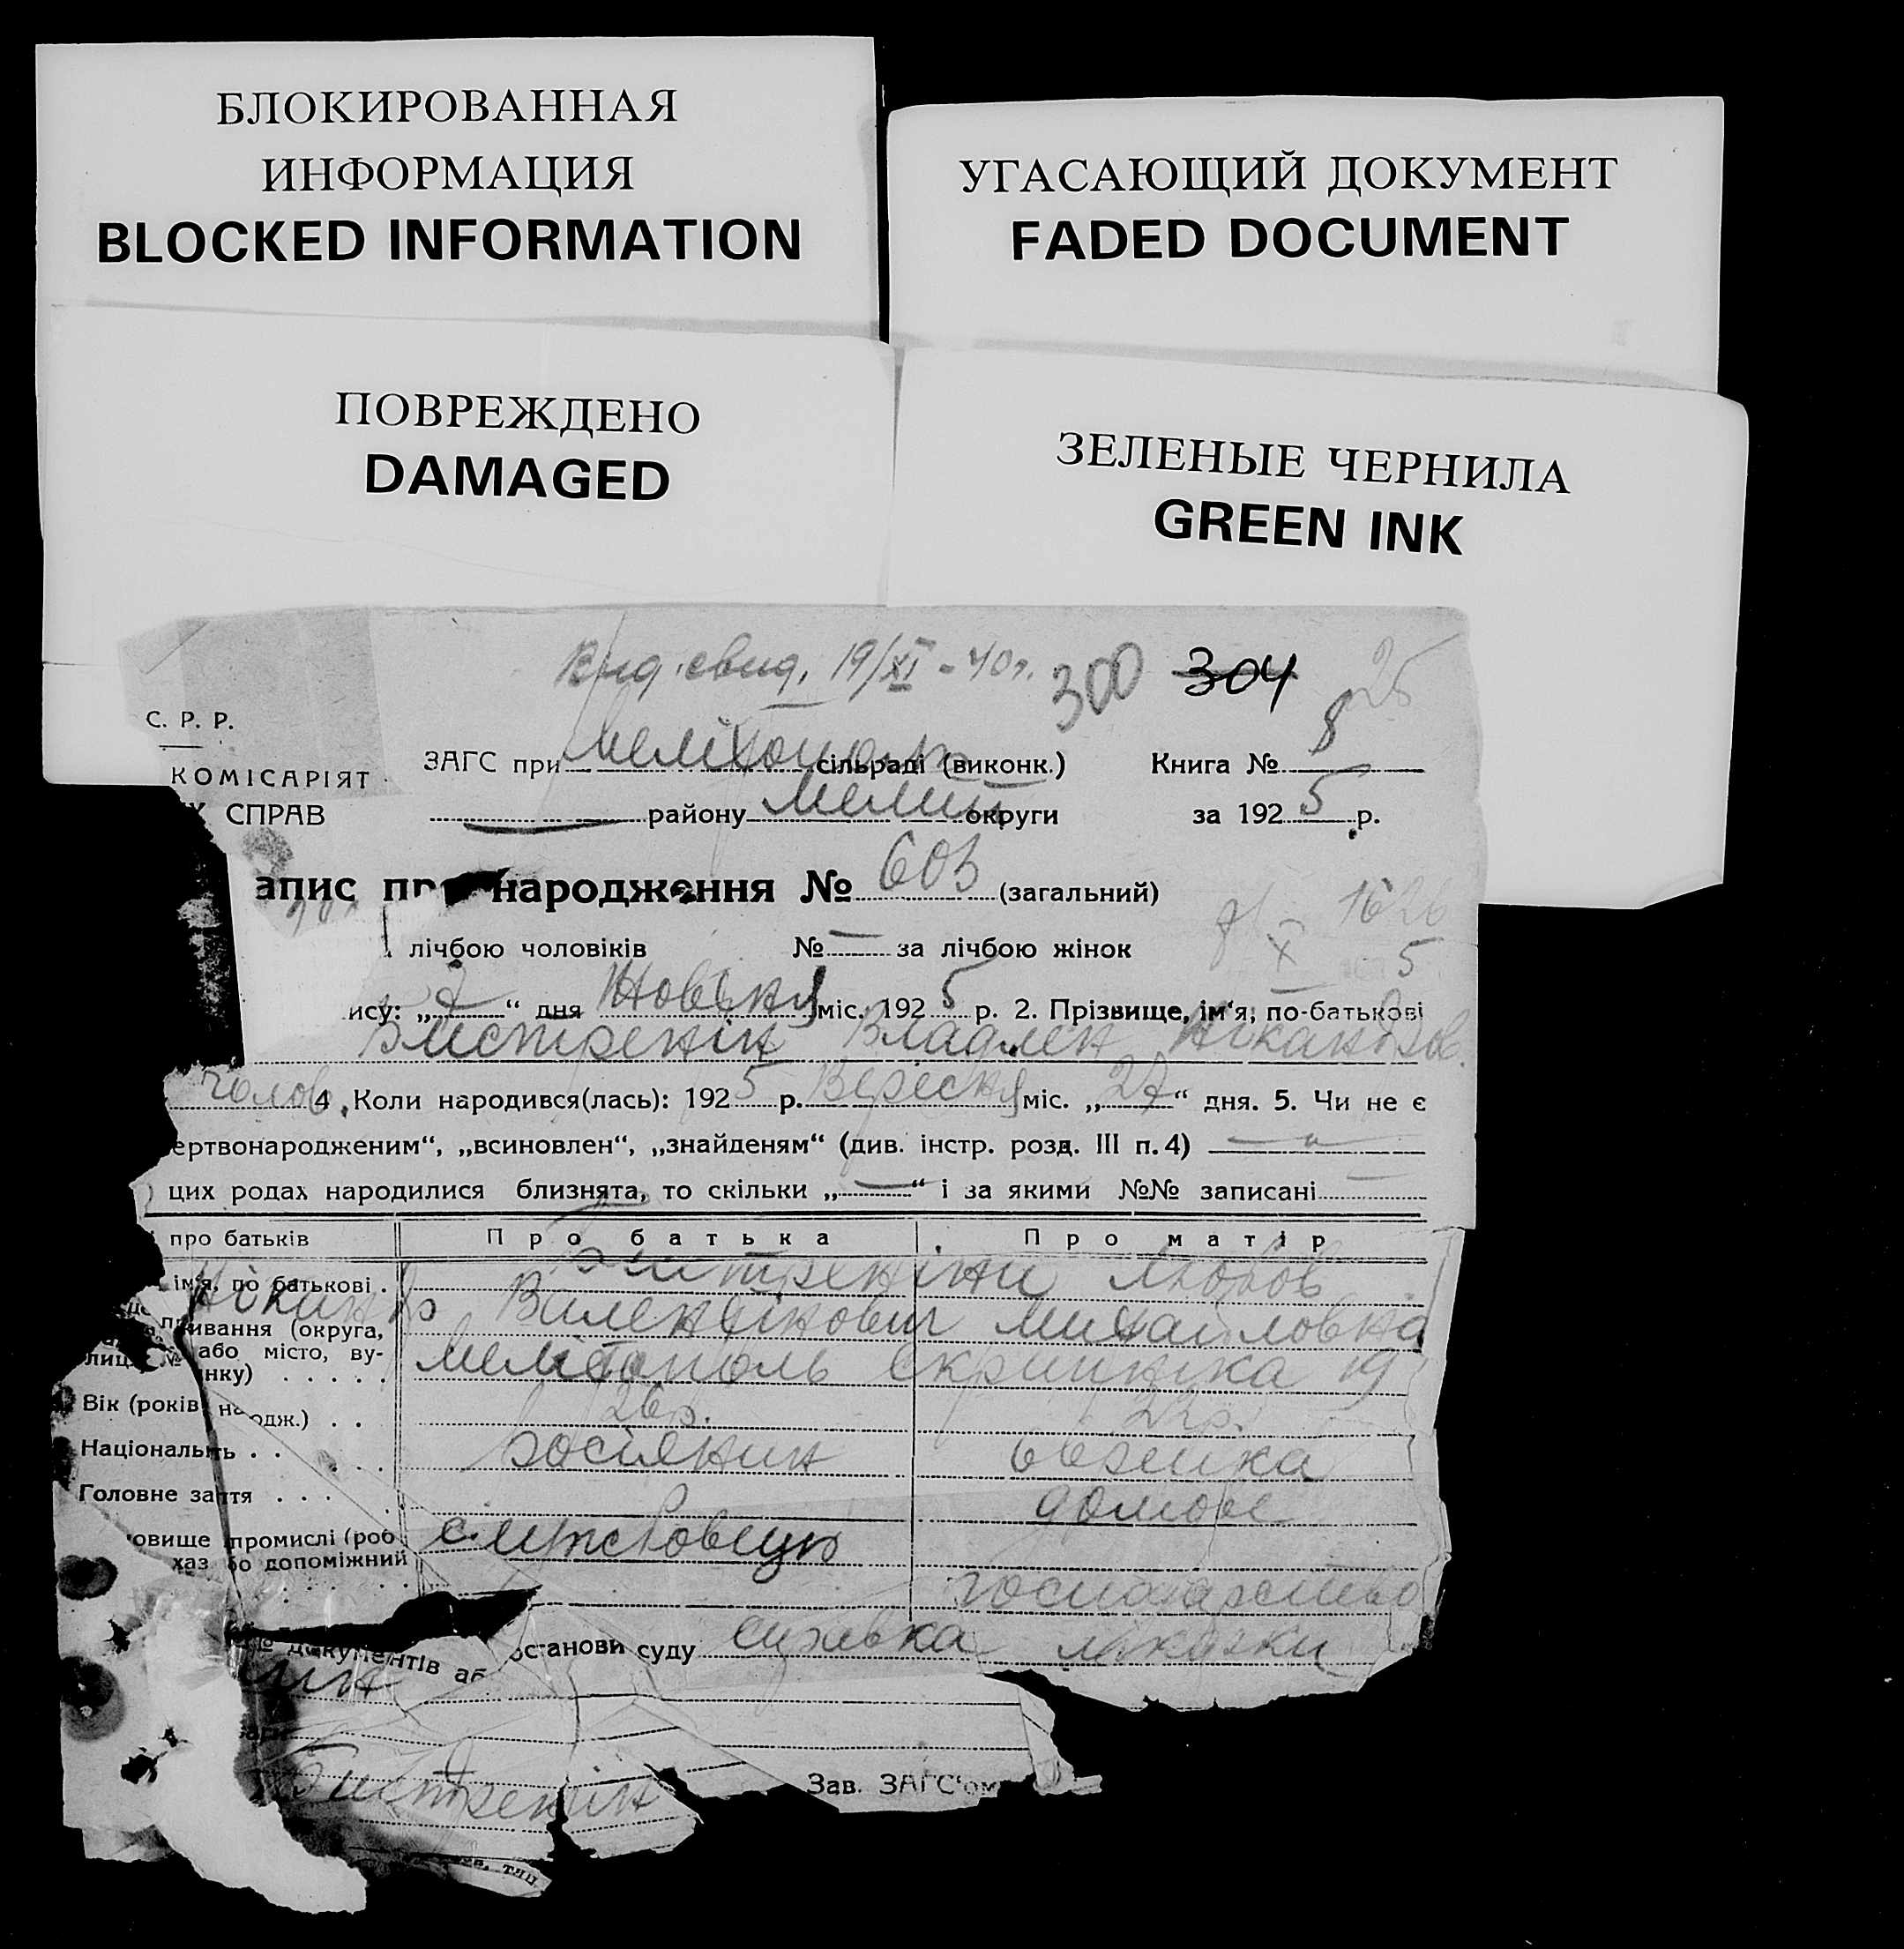 БЛОКИРОВАННАЯ
ИНФОРМАЦИЯ
BLOCKED INFORMATION
УГАСАЮЩИЙ ДОКУМЕНТ
FADED DOCUMENT
ПОВРЕЖДЕНО
DAMAGED
ЗЕЛЕНЫЕ ЧЕРНИЛА
GREEN INK
Вид. свид. 19/XI - 40г. 300 304 25
С. Р. Р.
КОМІСАРІЯТ
СПРАВ
ЗАГС при сільраді (виконк.) Книга № 8
району Мелит округи за 1925 р.
апис пр народження № 603 (загальний)
лічбою чоловіків № — за лічбою жінок
X 5
ису: „2“ дня Жовтня міс. 1925 р. 2. Прізвище, ім'я, по-батькові
Бистренін Владлен Нікандров.
чолов. 4. Коли народився(лась): 1925 р. Вересня міс. „27“ дня. 5. Чи не є
ертвонародженим“, „всиновлен“, „знайденям“ (див. інстр. розд. III п. 4) — „ —
цих родах народилися близнята, то скільки „—“ і за якими №№ записані —
про батьків Про батька Про матір
ім'я, по батькові . Бистреніни Любов
Нікандр Валентінович Михайловна
ивання (округа,
або місто, ву-
лиц № инку) . . . . . Мелітополь 19
Вік (років народж.) . . 26р. 22р.
Національ ть . . росіянин
Головне за ття . . . домове
овище промислі (роб.
хаз бо допоміжний службовець
господарство
документів аб останови суду
Бистренін
Зав. ЗАГС'ом
тип.